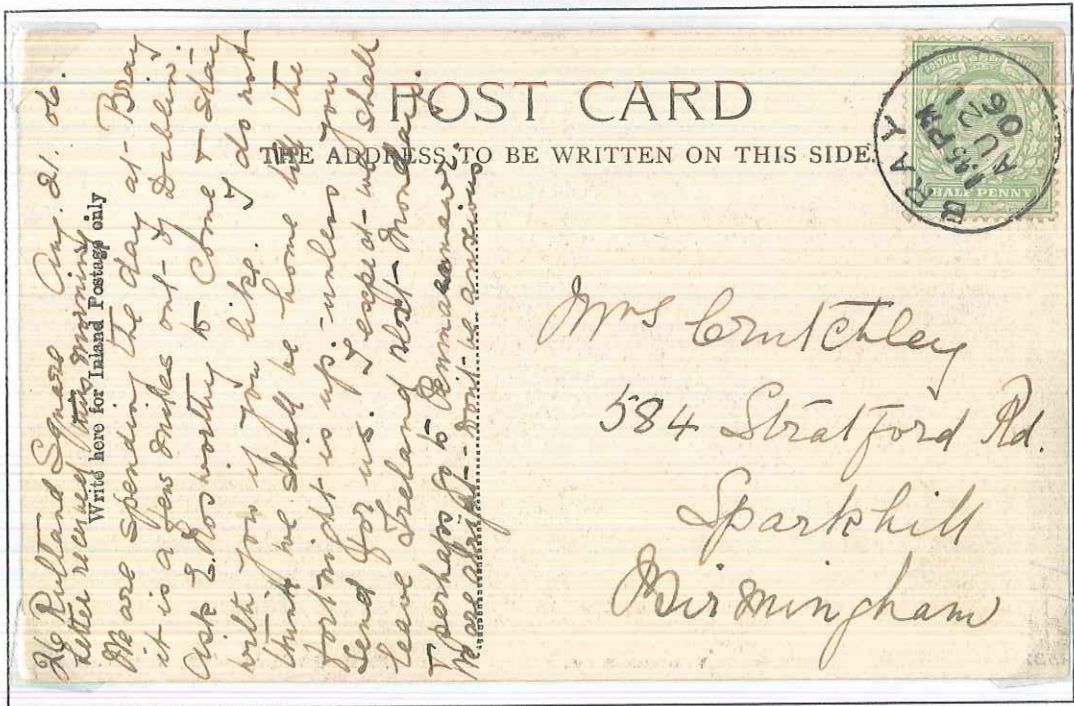 POST CARD
THE ADDRESS TO BE WRITTEN ON THIS SIDE.
Write here for Inland Postage only
26 Rutland Square Aug. 21. 06.
Letter received this morning
We are spending the day at Bray
it is a few miles out of Dublin.
Ask E. Rosworthy to come & stay
with you if you like. I do not
think we shall be home by the
fortnight is up: unless you
send for us. I expect we shall
leave Ireland next Monday
& perhaps go to
We are alright - Don't be anxious
POSTAGE
HALF PENNY
BRAY
1.45 PM
AU 21
06
Mrs Crutchley
584 Stratford Rd.
Sparkhill
Birmingham